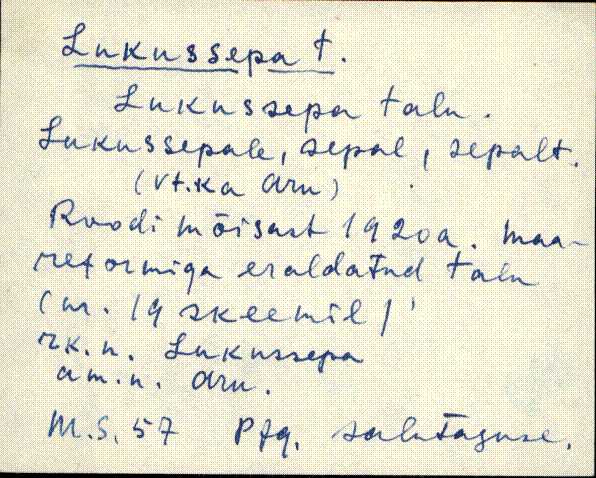 Lukussepa t.
Lukussepa talu.
Lukussepale, sepal, sepalt.
(vt. ka Aru)
Roodi mõisast 1920a. maa-
reformiga eraldatud talu
(nr. 19 skeemil)
rk.n. Lukussepa
am.n. Aru.
M.S. 57